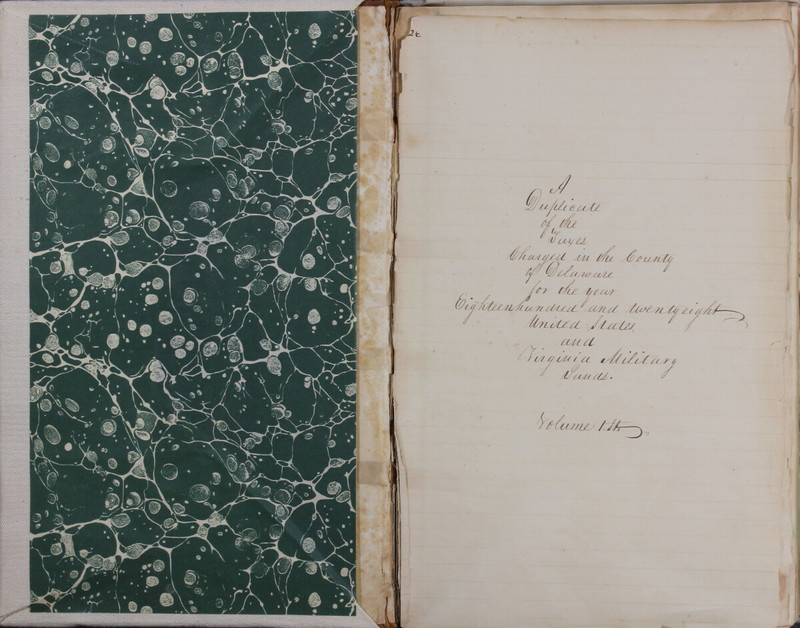 A
Duplicate
of the
Taxes
Charged in the County
of Delaware
for the year
Eighteen hundred and twentyeight
United States
and
Virginia Military
Lands.
Volume 1st.